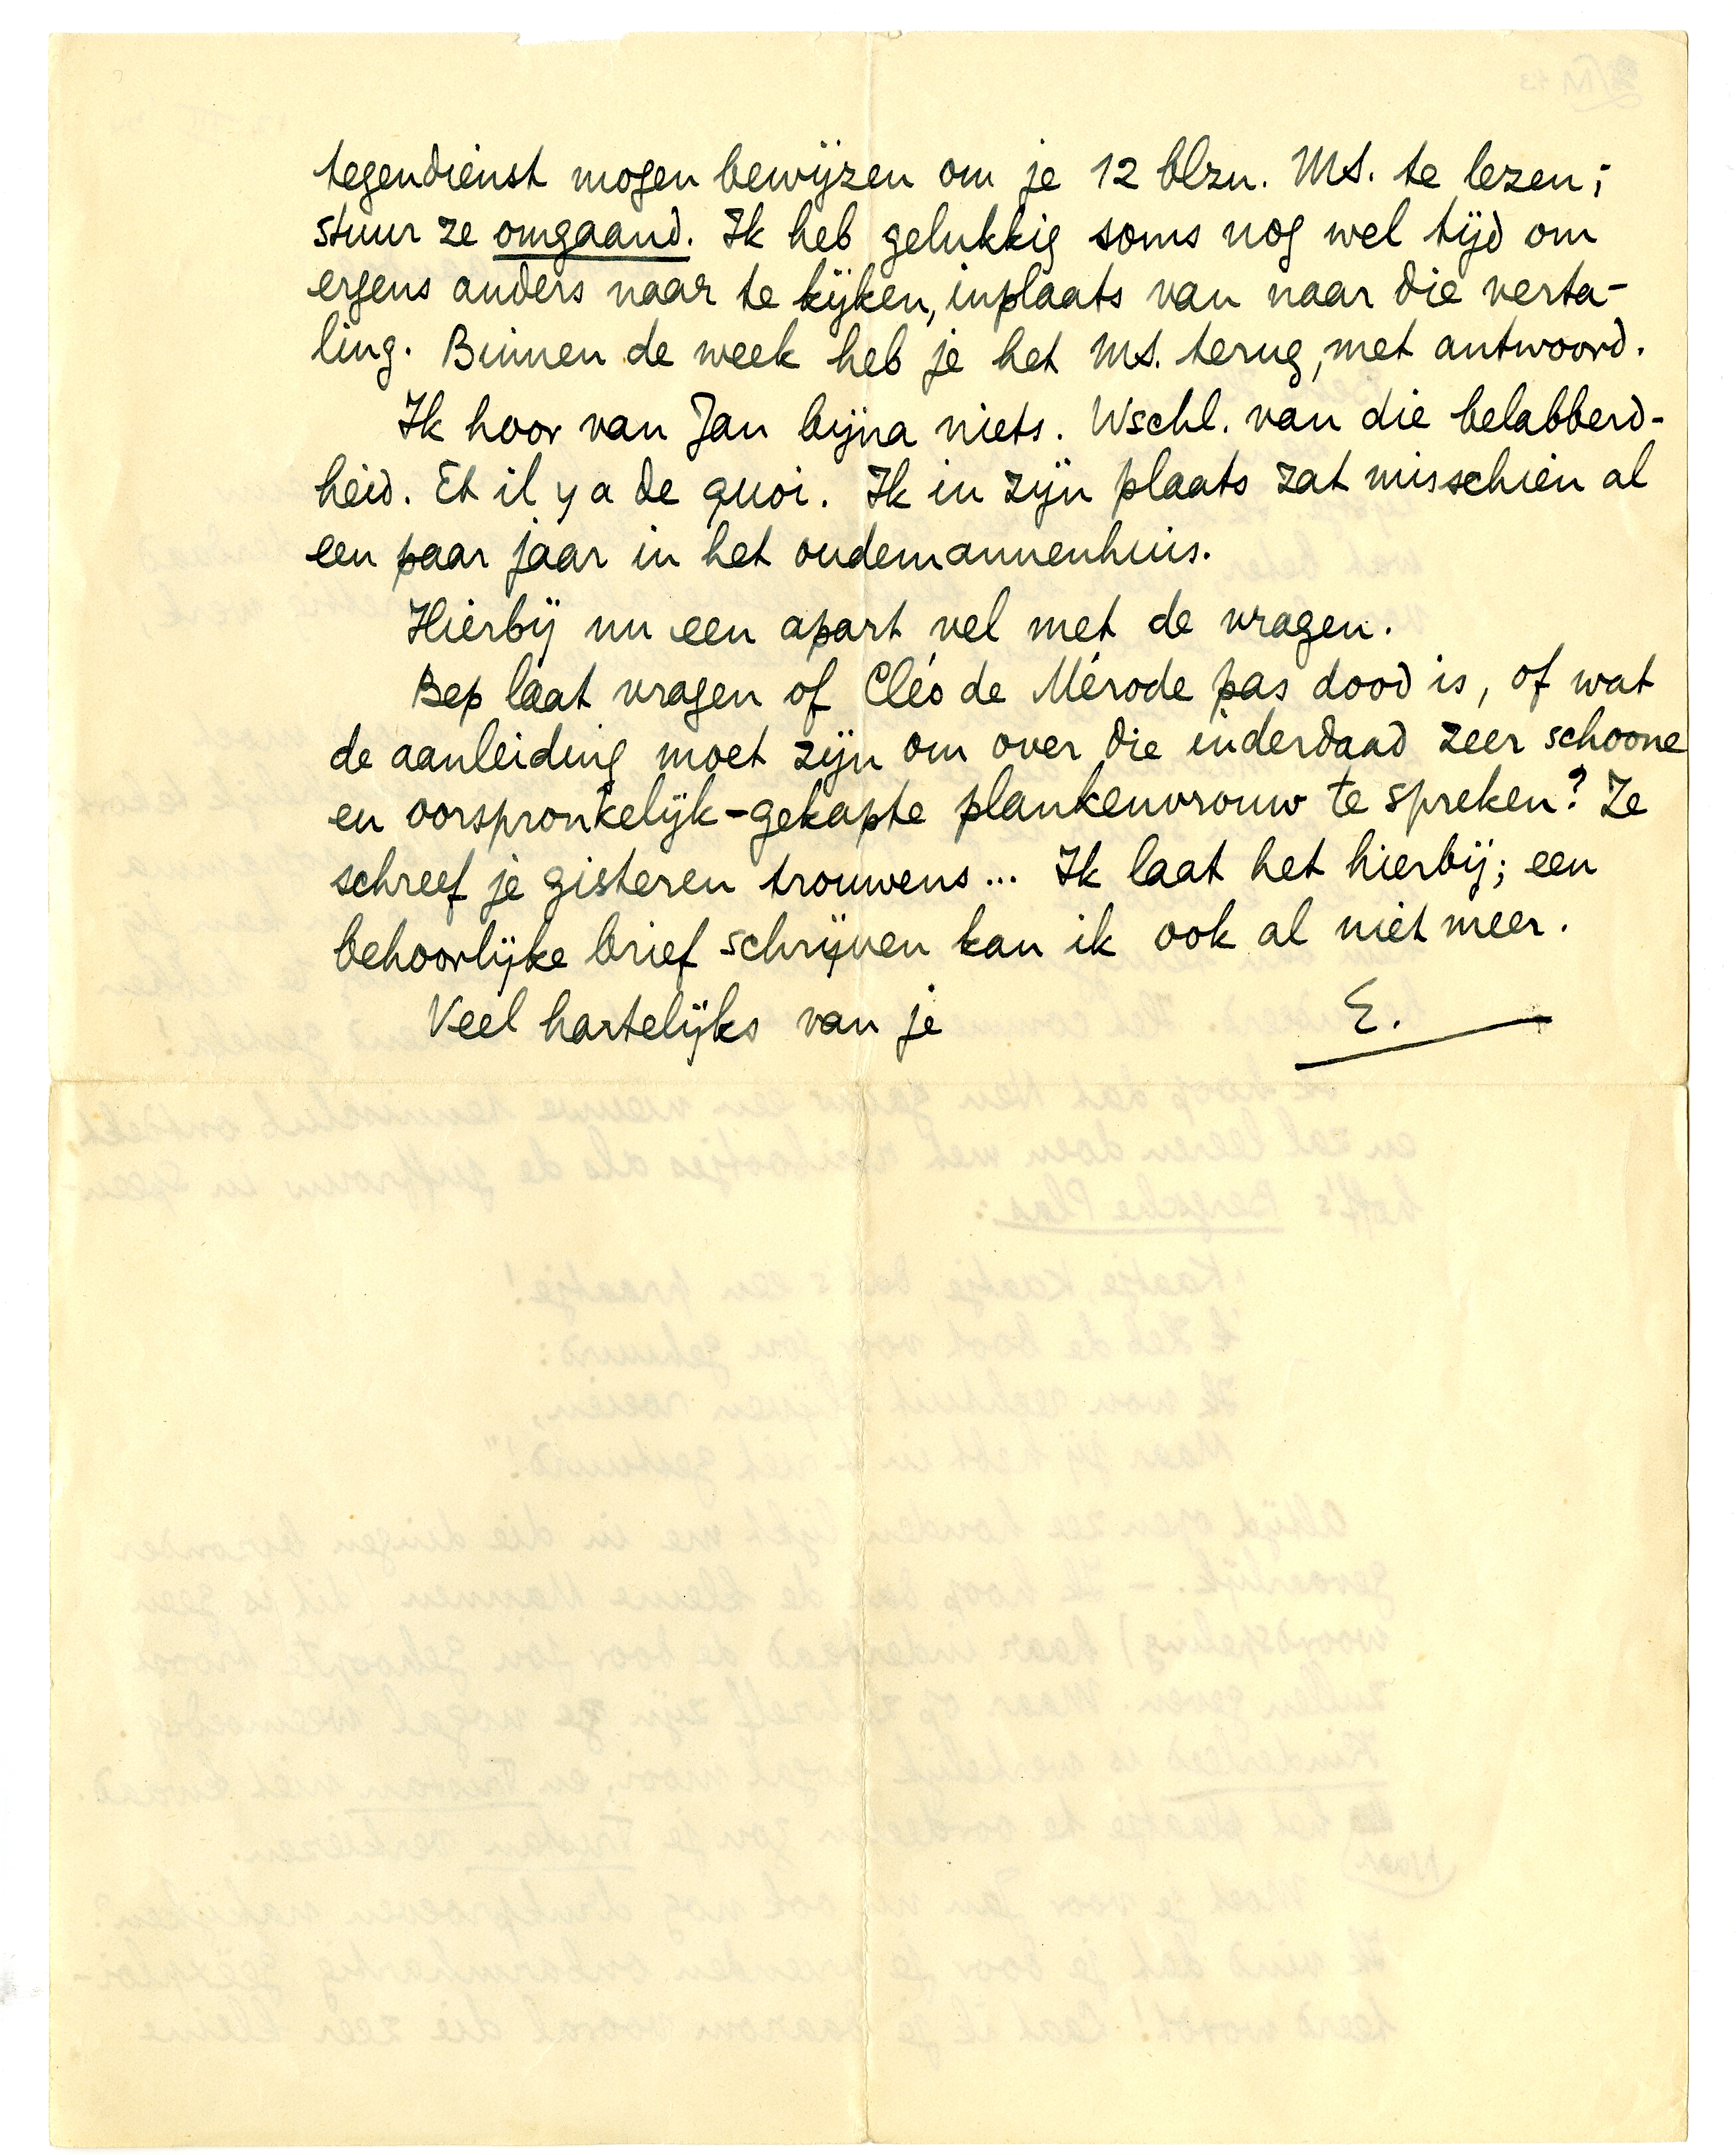 tegendienst mogen bewijzen om je 12 blzn. MS. te lezen;
stuur ze omgaand. Ik heb gelukkig soms nog wel tijd om
ergens anders naar te kijken, inplaats van naar die verta-
ling. Binnen de week heb je het MS. terug, met antwoord.
Ik hoor van Jan bijna niets. Wschl. van die belabberd-
heid. Et il y a de quoi. Ik in zijn plaats zat misschien al
een paar jaar in het oudemannenhuis.
Hierbij nu een apart vel met de vragen.
Bep laat vragen of Cléo de Mérode pas dood is, of wat
de aanleiding moet zijn om over die inderdaad zeer schoone
en oorspronkelijk-gekapte plankenvrouw te spreken? Ze
schreef je gisteren trouwens... Ik laat het hierbij; een
behoorlijke brief schrijven kan ik ook al niet meer.
Veel hartelijks van je E.